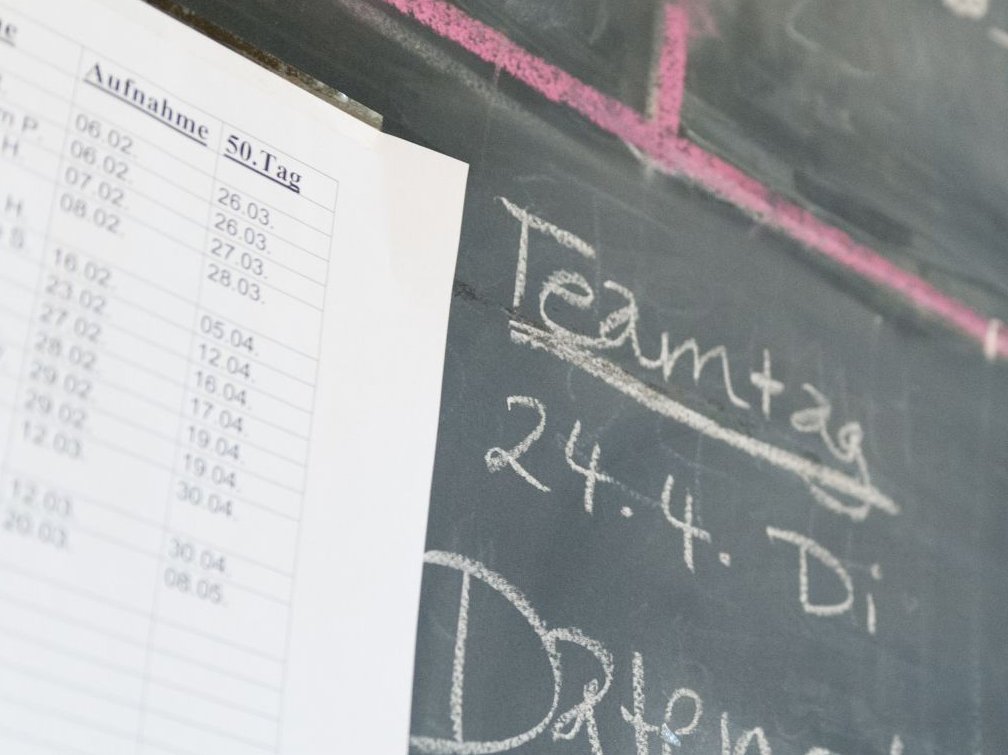 Aufnahme 50.Tag
06.02. 26.03.
06.02. 26.03.
07.02. 27.03.
08.02. 28.03.
16.02. 05.04.
23.02 12.04.
27.02 16.04.
28.02. 17.04.
29.02 19.04.
29.02. 19.04.
12.03. 30.04.
12.03. 30.04.
20.03. 08.05.
Teamtag
24.4. Di